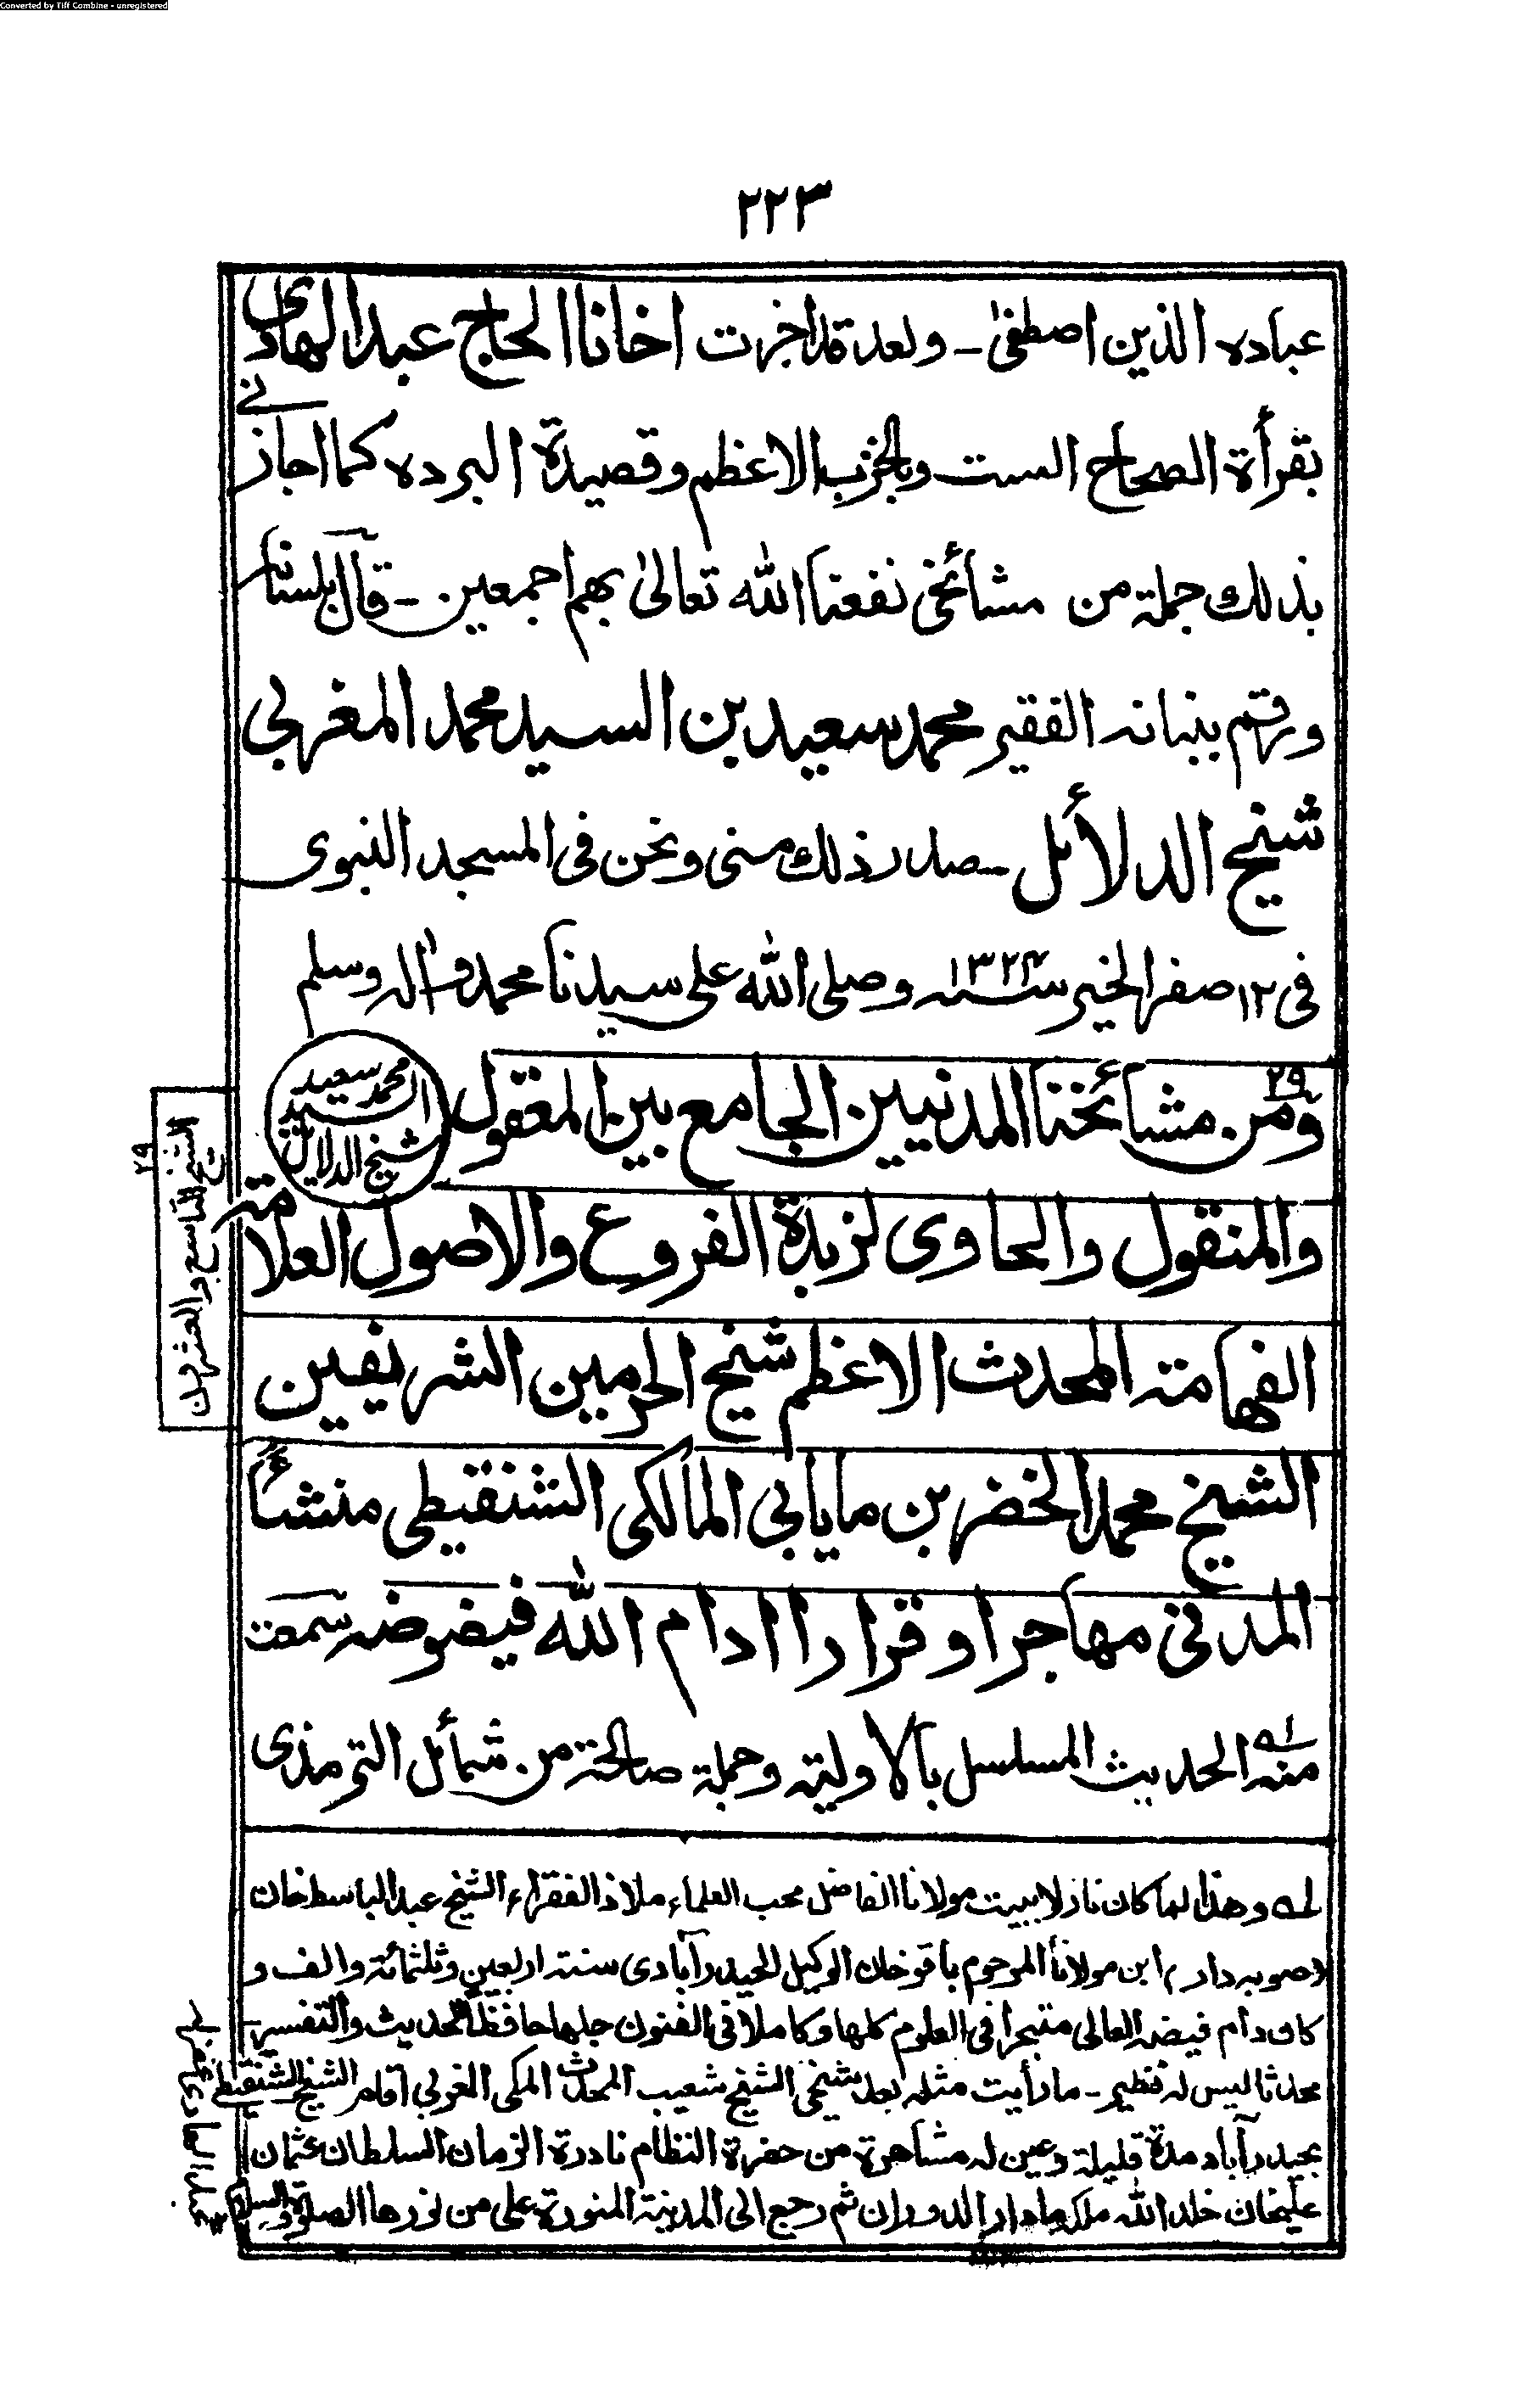 Converted by Tiff Combine - unregistered
٢٢٣
عباده الذين اصطفىٰ ـ وبعد قد اجزت اخانا الحاج عبد الهادى
بقرأة الصحاح الست وبالحزب الاعظم وقصيدة البرده كما اجازنے
بذلك جملة من مشائخى نفعنا الله تعالىٰ بهم اجمعين ـ قال بلسانه
ورقم ببنانه الفقير محمد سعيد بن السيد محمد المغربي
شيخ الدلائل ـ صدر ذلك منى ونحن فى المسجد النبوى
فى ١٢ صفر الخير سنه ١٣٢٤ وصلى الله على سيدنا محمد وآله وسلم
محمد سعيد
السيد
شيخ الدلائل
٢٩
ومن مشائخنا المدنيين الجامع بين المعقول
والمنقول والحاوى لزبدة الفروع والاصول العلامة
الشيخ التاسع والعشرون
٢٩
الفهامة المحدث الاعظم شيخ الحرمين الشريفين
الشيخ محمد الخضر بن مايابي المالكى الشنقيطى منشأً
المدنى مهاجرا و قرارا ادام الله فيوضه سمعت
منه الحديث المسلسل بالاولية وجملة صالحة من شمائل الترمذى
لـه وهذا لما كان نازلا ببيت مولانا الفاضل محب العلماء ملاذ الفقراء الشيخ عبد الباسط خان
(صوبه دار) ابن مولانا المرحوم باقوخان الوكيل الحيدرآبادى سنة اربعين وثلثمائة والف و
كان دام فيضه العالى متبحرا فى العلوم كلها وكاملا فى الفنون جلها حافظا لحديث والتفسير
محدثا ليس له نظير ـ ما رأيت مثله بعد شيخى الشيخ شعيب المحدث المكى المغربي اقام الشيخ الشنقيطى
بحيدرآباد مدة قليلة وعين له مشاهرة من حضرة النظام نادرة الزمان السلطان عثمان
عليخان خلد الله ملكه مادار الدوران ثم رجع الى المدينة المنورة على من نورها الصلوة والسلام